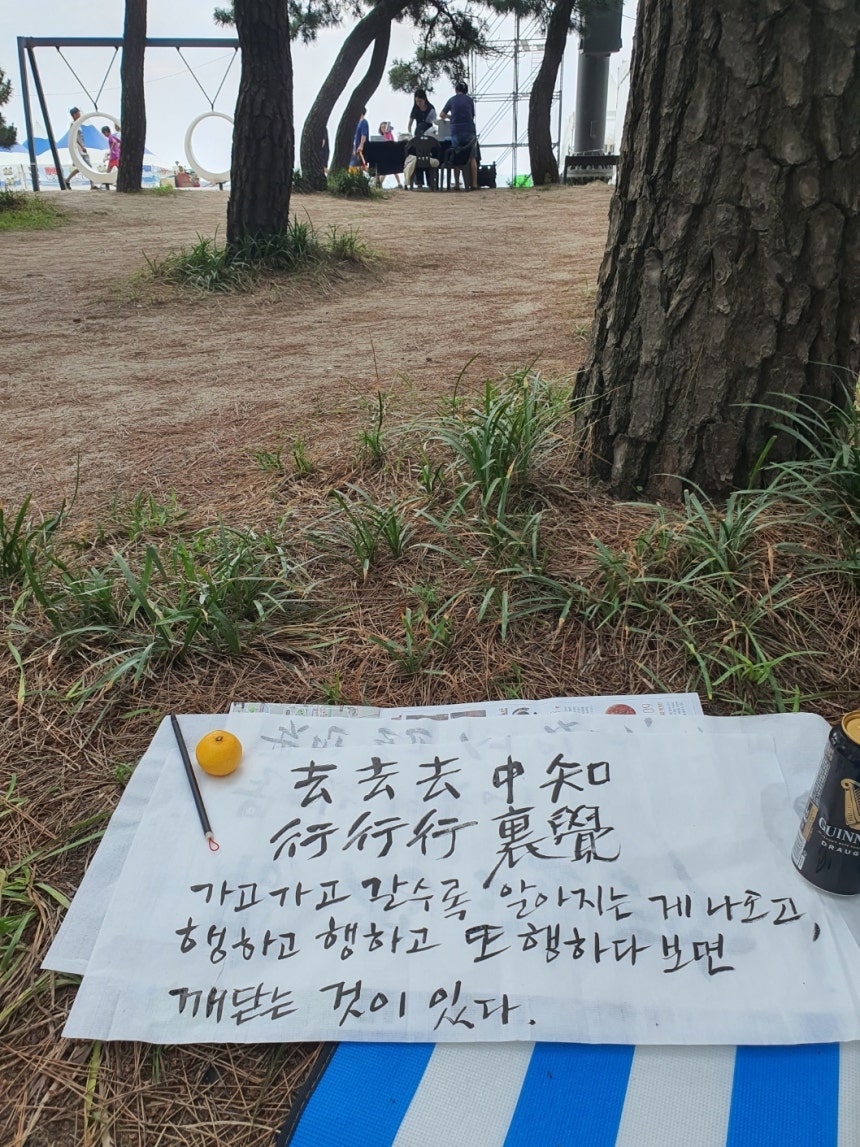 去去去中知
行行行裏覺
가고가고 갈수록 알아지는 게 나오고,
행하고 행하고 또 행하다 보면
깨닫는 것이 있다.
GUINN
DRAUG